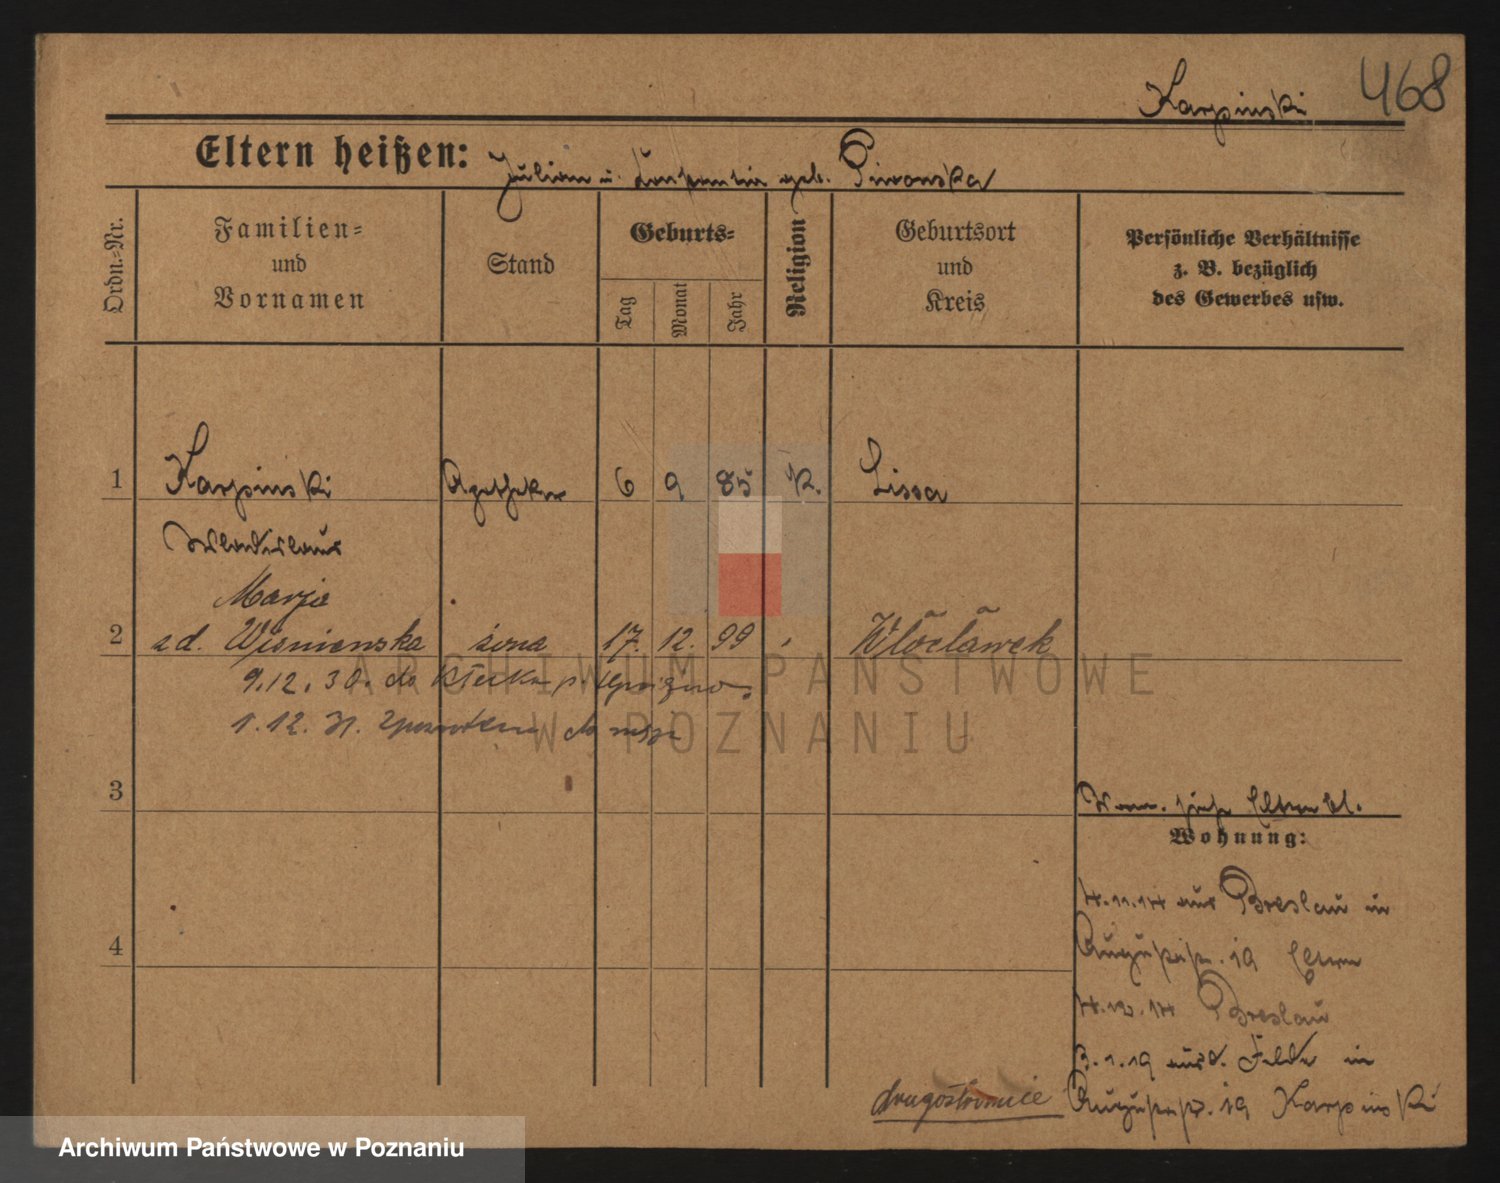 Karpinski 468
Eltern heißen: Julian u. Konstantia geb. Piwonska
Ordn.-Nr.
Familien-
und
Vornamen
Stand
Geburts-
Tag
Monat
Jahr
Religion
Geburtsort
und
Kreis
Persönliche Verhältnisse
z. B. bezüglich
des Gewerbes usw.
1 Karpinski Apotheker 6 9 85 K. Lissa
Wladislaus
Marja
2 zd. Wisniewska żona 17. 12. 99 Włocławek
9.12.30. do Kłecka p.
1.12.31. z powrotem do
3
Vorm. siehe Elternbl.
Wohnung:
4.11.14 aus Breslau in
Augustastr. 19 Eltern
4
4.12.14 Breslau
3.1.19 aus d. Felde in
Augustastr. 19 Karpinski
drugostronnie
ARCHIWUM PAŃSTWOWE
W POZNANIU
Archiwum Państwowe w Poznaniu